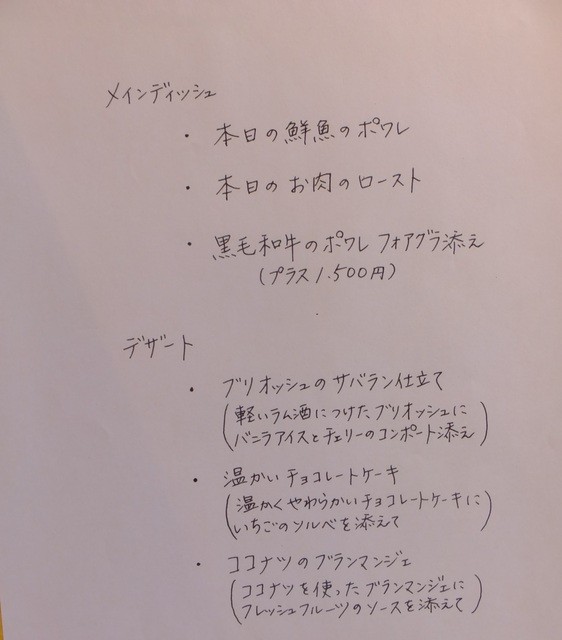 メインディッシュ
・ 本日の鮮魚のポワレ
・ 本日のお肉のロースト
・ 黒毛和牛のポワレ フォアグラ添え
(プラス1.500円)
デザート
・ ブリオッシュのサバラン仕立て
(軽いラム酒につけたブリオッシュに
バニラアイスとチェリーのコンポート添え)
・ 温かいチョコレートケーキ
(温かくやわらかいチョコレートケーキに
いちごのソルベを添えて)
・ ココナツのブランマンジェ
(ココナツを使ったブランマンジェに
フレッシュフルーツのソースを添えて)